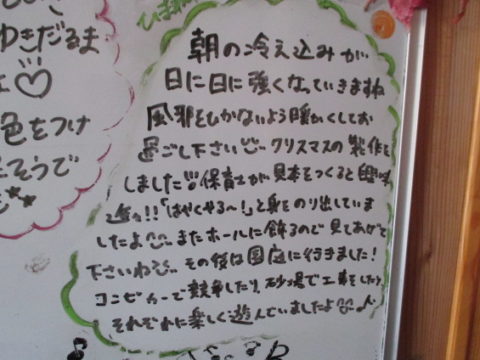 ひま
朝の冷え込みが
日に日に強くなっていきますね
風邪をひかないよう暖かくしてお
過ごし下さい
クリスマスの製作を
しました!!保育士が見本をつくると興味
津々!!「はやくやる〜!」と身をのり出していま
したよ
またホールに飾るので見てあげて
下さいね
その後は園庭に行きました!
コンビカーで競争したり、砂場で工事をしたり
それぞれに楽しく遊んでいましたよ♪
ゆきだるま
♡
色をつけ
たそうで